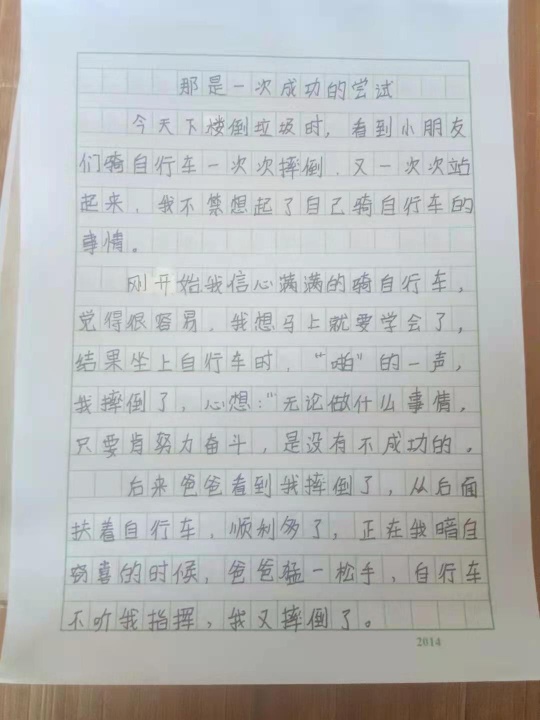 那是一次成功的尝试
今天下楼倒垃圾时，看到小朋友
们骑自行车一次次摔倒，又一次次站
起来，我不禁想起了自己骑自行车的
事情。
刚开始我信心满满的骑自行车，
觉得很容易，我想马上就要学会了，
结果坐上自行车时，“啪”的一声，
我摔倒了，心想：“无论做什么事情，
只要肯努力奋斗，是没有不成功的。
后来爸爸看到我摔倒了，从后面
扶着自行车，顺利多了，正在我暗自
窃喜的时候，爸爸猛一松手，自行车
不听我指挥，我又摔倒了。
2014